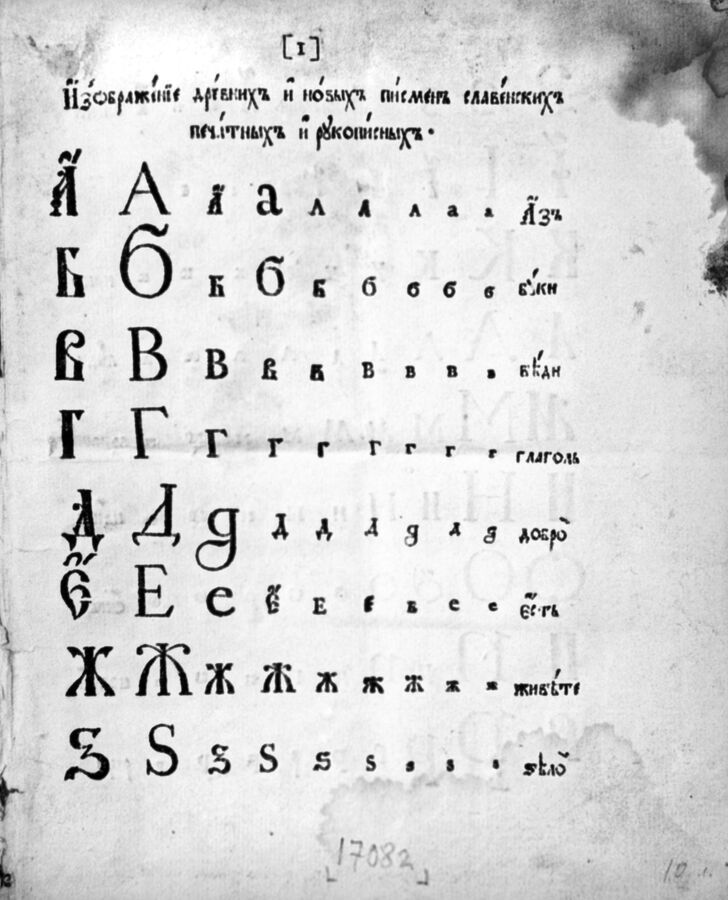 [1]
И҆зѡбраже́нїе дре́вних и҆ но́вых пи́смен славе́нских
печа́тных и҆ рꙋкопи́сных.
А҆́ А а҆́ а а а а а а А҆́зъ
Б Б Б Б б б б б б бꙋ́ки
В В В в в в в в в вѣ́ди
Г Г г г г г г г г глаголь
Д Д д д д д д д д добро̀
Е҆́ Е е е҆́ е е е е е є҆́сть
Ж Ж ж ж ж ж ж ж ж живѣ́те
Ѕ Ѕ ѕ ѕ ѕ ѕ ѕ ѕ ѕ ѕѣло̀
17082
10